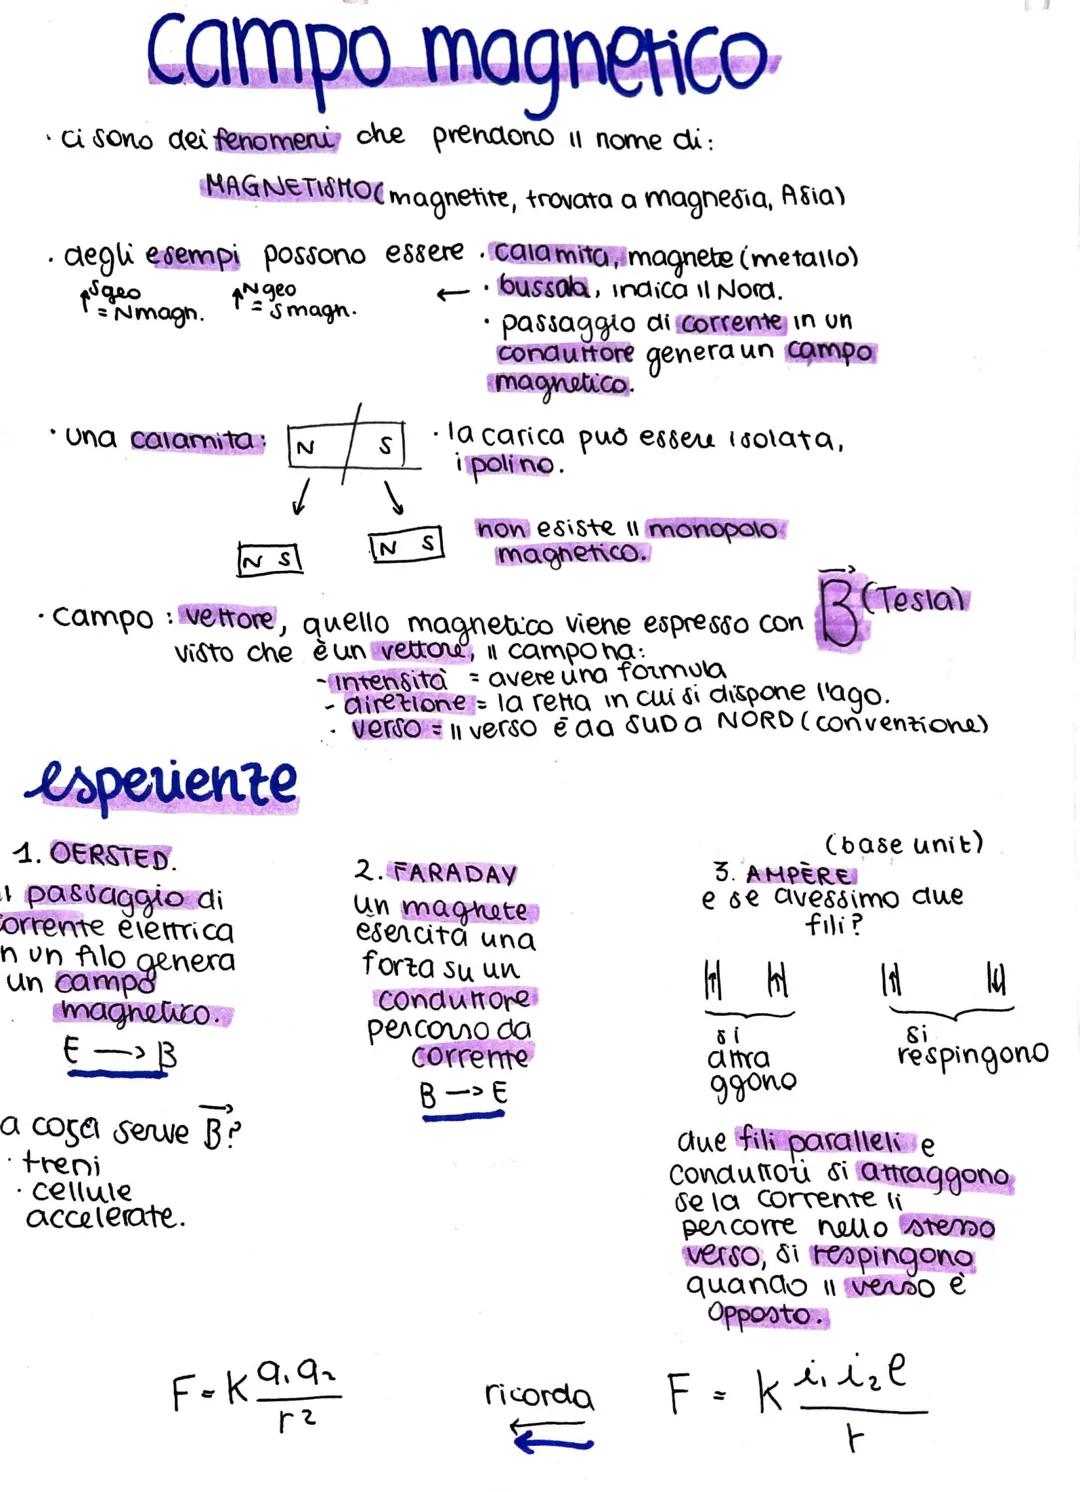 campo magnetico
· ci sono dei fenomeni che prendono il nome di:
MAGNETISMO (magnetite, trovata a magnesia, Asia)
· degli esempi possono essere · calamita, magnete (metallo)
↑ Sgeo = Nmagn. ↑ Ngeo = Smagn. ← · bussola, indica il Nord.
· passaggio di corrente in un
conduttore genera un campo
magnetico.
· una calamita: N S · la carica può essere isolata,
i poli no.
N S N S non esiste il monopolo
magnetico.
· campo : vettore, quello magnetico viene espresso con B (Tesla)
visto che è un vettore, il campo ha:
- intensità = avere una formula
- direzione = la retta in cui si dispone l'ago.
· verso = il verso è da SUD a NORD (convenzione)
esperienze
1. OERSTED.
il passaggio di
corrente elettrica
in un filo genera
un campo
magnetico.
E —> B
a cosa serve B?
· treni
· cellule
accelerate.
2. FARADAY
un magnete
esercita una
forza su un
conduttore
percorso da
corrente
B —> E
(base unit)
3. AMPÈRE
e se avessimo due
fili?
si
attra
ggono
si
respingono
due fili paralleli e
conduttori si attraggono
se la corrente li
percorre nello stesso
verso, si respingono
quando il verso è
opposto.
F = K q1 q2 / r²
ricorda
F = K i1 i2 l / r